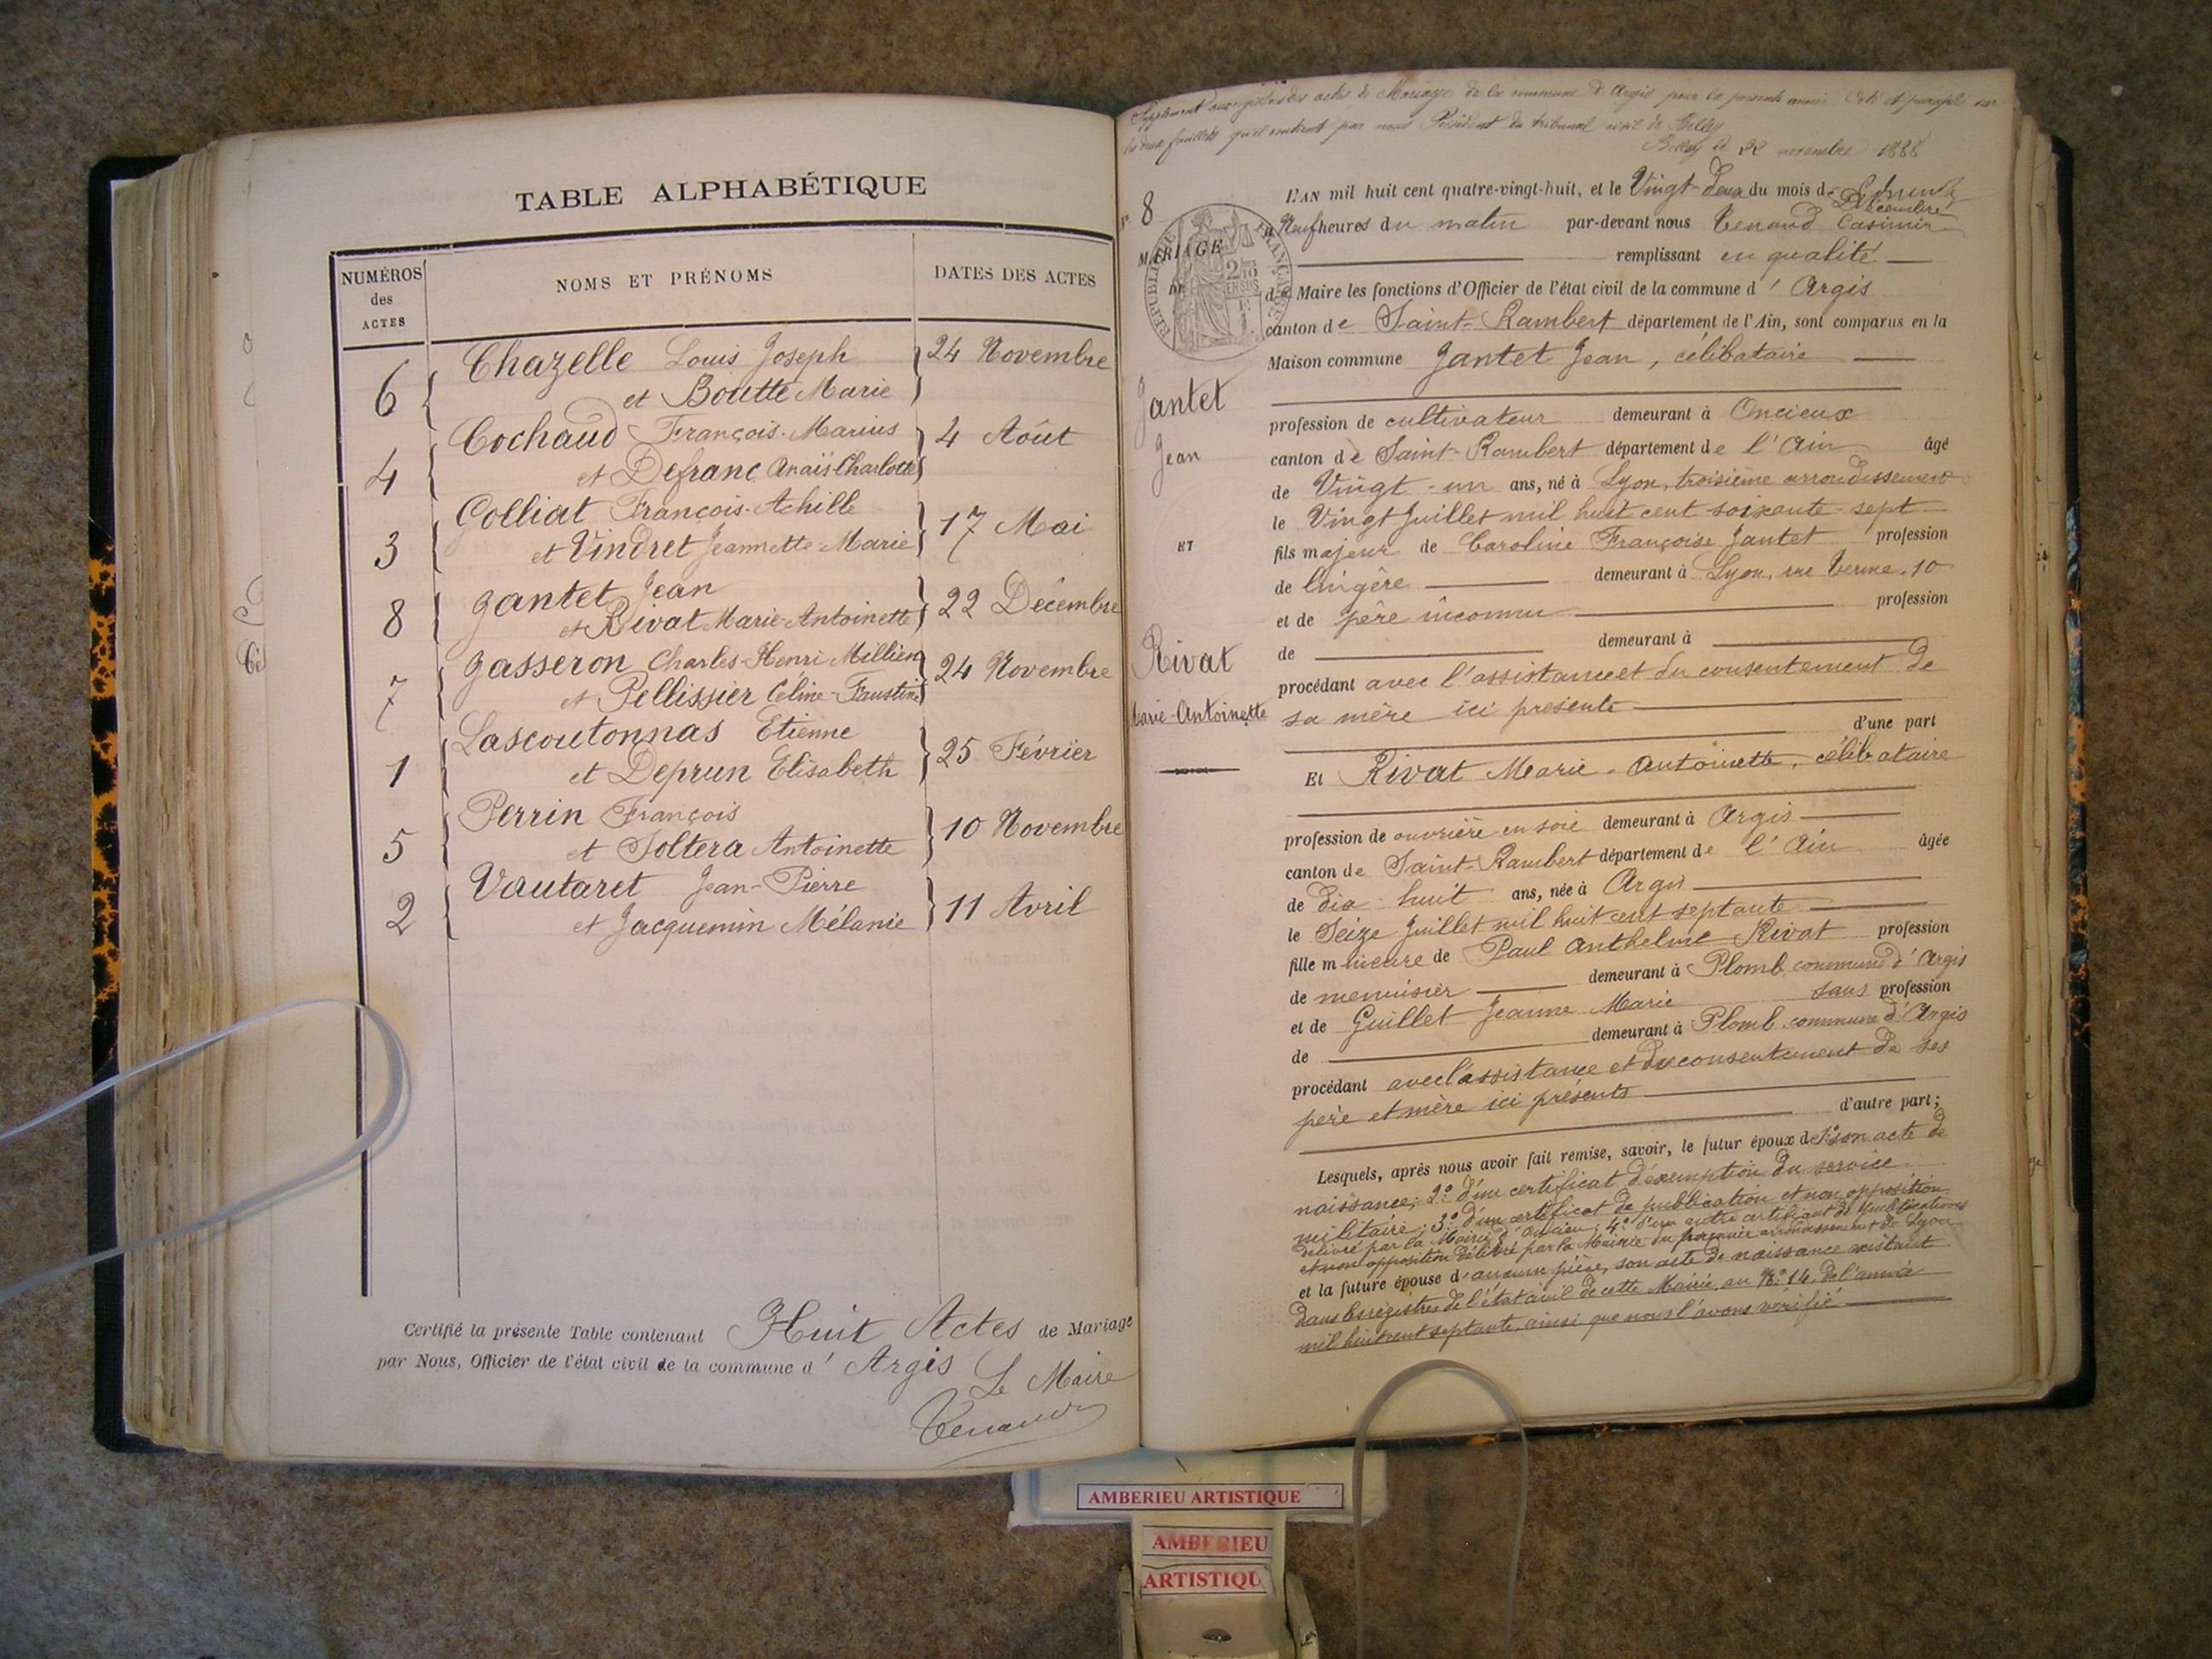 TABLE ALPHABÉTIQUE
NUMÉROS des ACTES
NOMS ET PRÉNOMS
DATES DES ACTES
6 Chazelle Louis Joseph 24 Novembre
et Boutte Marie
4 Cochaud François-Marius 4 Août
et Defranc Anaïs-Charlotte
3 Colliat François-Achille 17 Mai
et Vindret Jeannette-Marie
8 Jantet Jean 22 Décembre
et Rivat Marie-Antoinette
7 Jasseron Charles-Henri Millien 24 Novembre
et Pellissier Céline-Faustine
1 Lascoutonnas Etienne 25 Février
et Deprun Elisabeth
5 Perrin François 10 Novembre
et Soltera Antoinette
2 Vautaret Jean-Pierre 11 Avril
et Jacquemin Mélanie
Certifié la présente Table contenant Huit Actes de Mariage
par Nous, Officier de l'état civil de la commune d' Argis
Le Maire
Tenaud
Supplément aux registres des actes de Mariage de la commune d'Argis pour la présente année Coté et paraphé sur
les deux feuillets qu'il contient par nous Président du tribunal civil de Belley
Belley le 22 novembre 1888
N° 8
MARIAGE
DE
RÉPUBLIQUE FRANÇAISE
Jantet
Jean
ET
Rivat
Marie-Antoinette
L'AN mil huit cent quatre-vingt-huit, et le Vingt deux du mois de
Décembre
à Neuf heures du matin par-devant nous Tenaud Casimir
remplissant en qualité
de Maire les fonctions d'Officier de l'état civil de la commune d' Argis
canton de Saint-Rambert département de l'Ain, sont comparus en la
Maison commune Jantet Jean, célibataire
profession de cultivateur demeurant à Oncieux
canton de Saint-Rambert département de l'Ain âgé
de Vingt-un ans, né à Lyon, troisième arrondissement
le Vingt Juillet mil huit cent soixante-sept
fils majeur de Caroline Françoise Jantet profession
de lingère demeurant à Lyon, rue Terme, 10
et de père inconnu profession
de demeurant à
procédant avec l'assistance et du consentement de
sa mère ici présente
d'une part
Et Rivat Marie-Antoinette, célibataire
profession de ouvrière en soie demeurant à Argis
canton de Saint-Rambert département de l'Ain âgée
de dix-huit ans, née à Argis
le Seize Juillet mil huit cent septante
fille mineure de Paul Anthelme Rivat profession
de menuisier demeurant à Plomb, commune d'Argis
et de Guillet Jeanne Marie sans profession
de demeurant à Plomb, commune d'Argis
procédant avec l'assistance et du consentement de ses
père et mère ici présents
d'autre part;
Lesquels, après nous avoir fait remise, savoir, le futur époux de 1° son acte de
naissance; 2° d'un certificat d'exemption du service
militaire; 3° d'un certificat de publication et non opposition
délivré par la Mairie d'Oncieu; 4° d'un autre certificat de publications
et non opposition délivré par la Mairie du premier arrondissement de Lyon
et la future épouse d'aucune pièce, son acte de naissance existant
dans les registres de l'état civil de cette Mairie, au N° 14 de l'année
mil huit cent septante, ainsi que nous l'avons vérifié
AMBERIEU ARTISTIQUE
AMBERIEU
ARTISTIQU